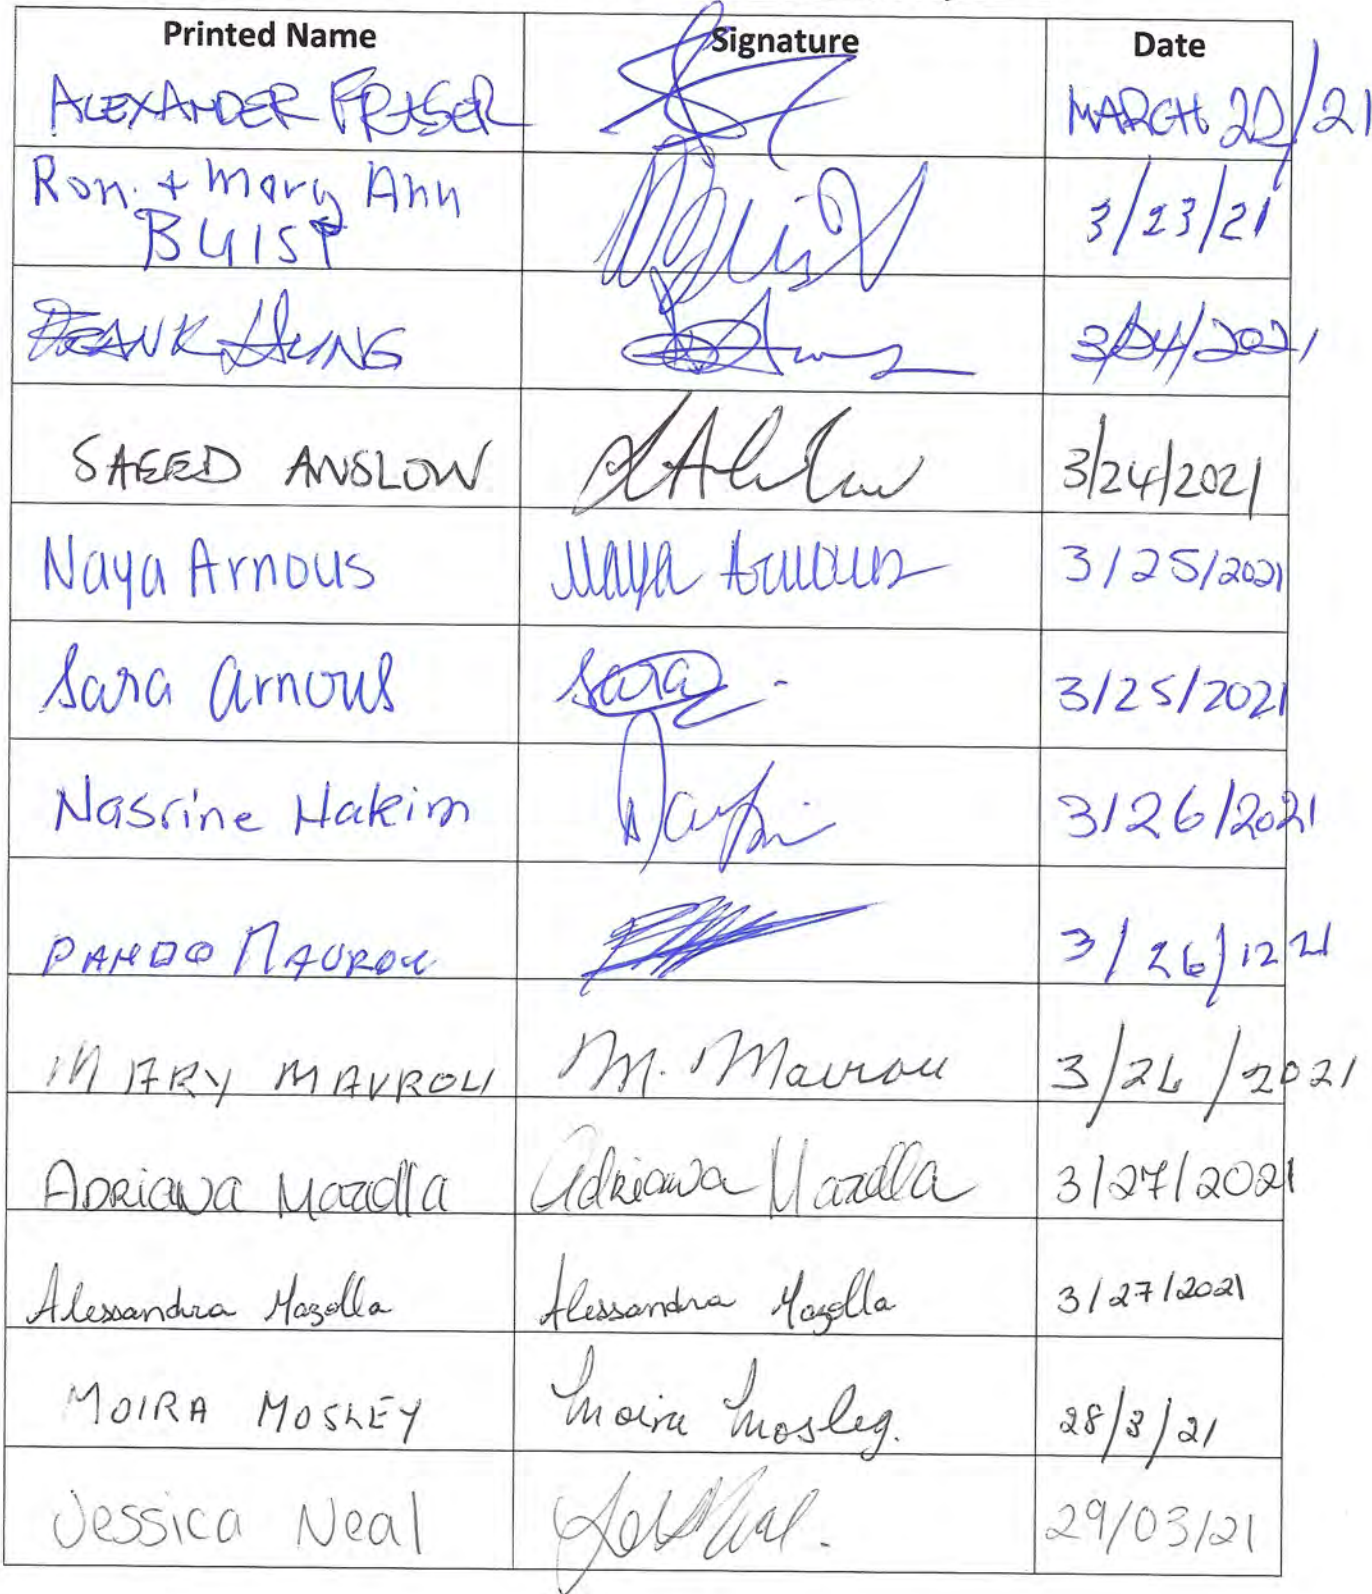 Printed Name Signature Date
ALEXANDER FRASER MARCH 22/21
Ron. + Mary Ann
BUIST Buist 3/23/21
FRANK HUNG 3/24/2021
SAEED ANSLOW 3/24/2021
Naya Arnous Naya Arnous 3/25/2021
Sara Arnous Sara 3/25/2021
Nasrine Hakim 3/26/2021
PANDO MAVROU 3/26/12 21
MARY MAVROU M. Mavrou 3/26/2021
ADRIANA Mazolla Adriana Mazolla 3/27/2021
Alessandra Mazolla Alessandra Mazolla 3/27/2021
MOIRA MOSLEY Moira Mosley. 28/3/21
Jessica Neal 29/03/21